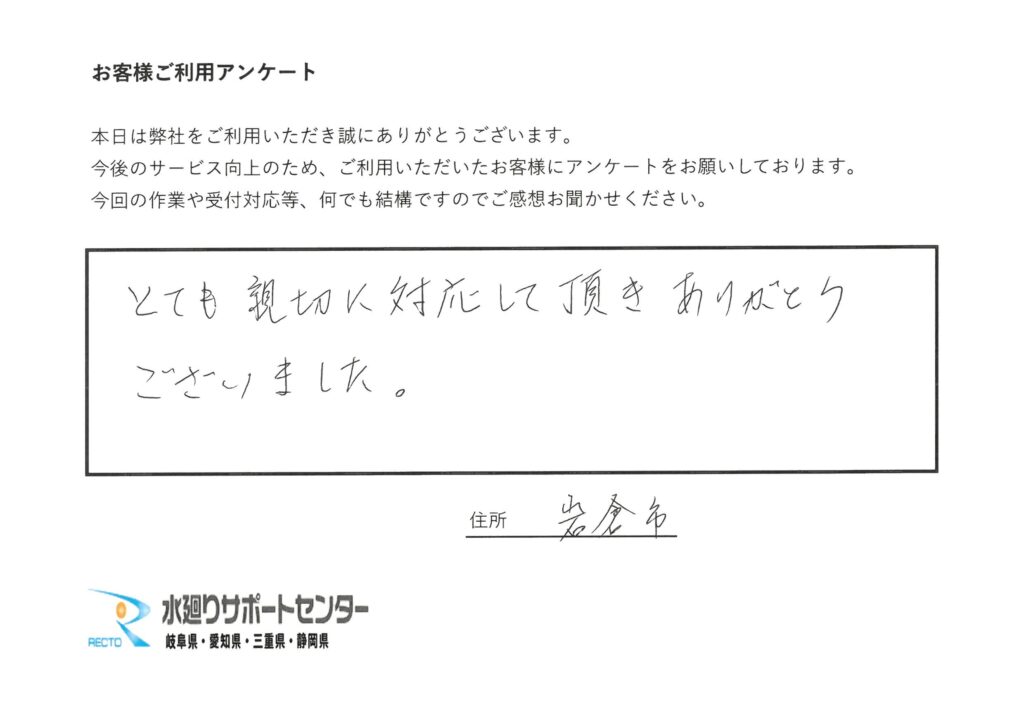 お客様ご利用アンケート
本日は弊社をご利用いただき誠にありがとうございます。
今後のサービス向上のため、ご利用いただいたお客様にアンケートをお願いしております。
今回の作業や受付対応等、何でも結構ですのでご感想お聞かせください。
とても親切に対応して頂きありがとう
ございました。
住所 岩倉市
水廻りサポートセンター
RECTO 岐阜県・愛知県・三重県・静岡県